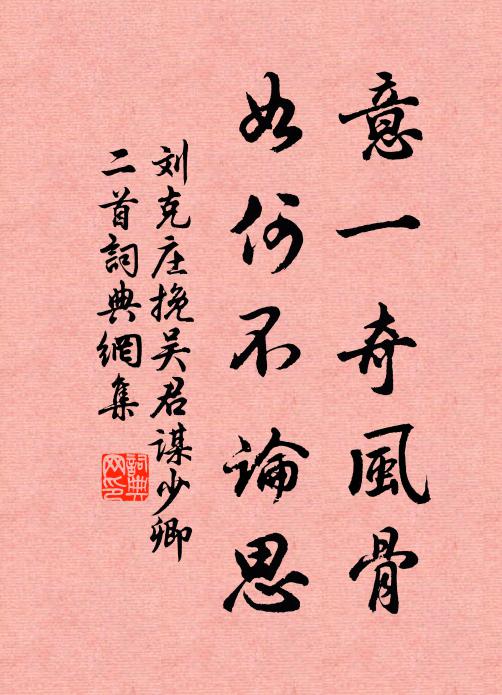 意一奇風骨
如何不論思
刘克庄挽吴君谋少卿
二首詞典網集
詞典網印